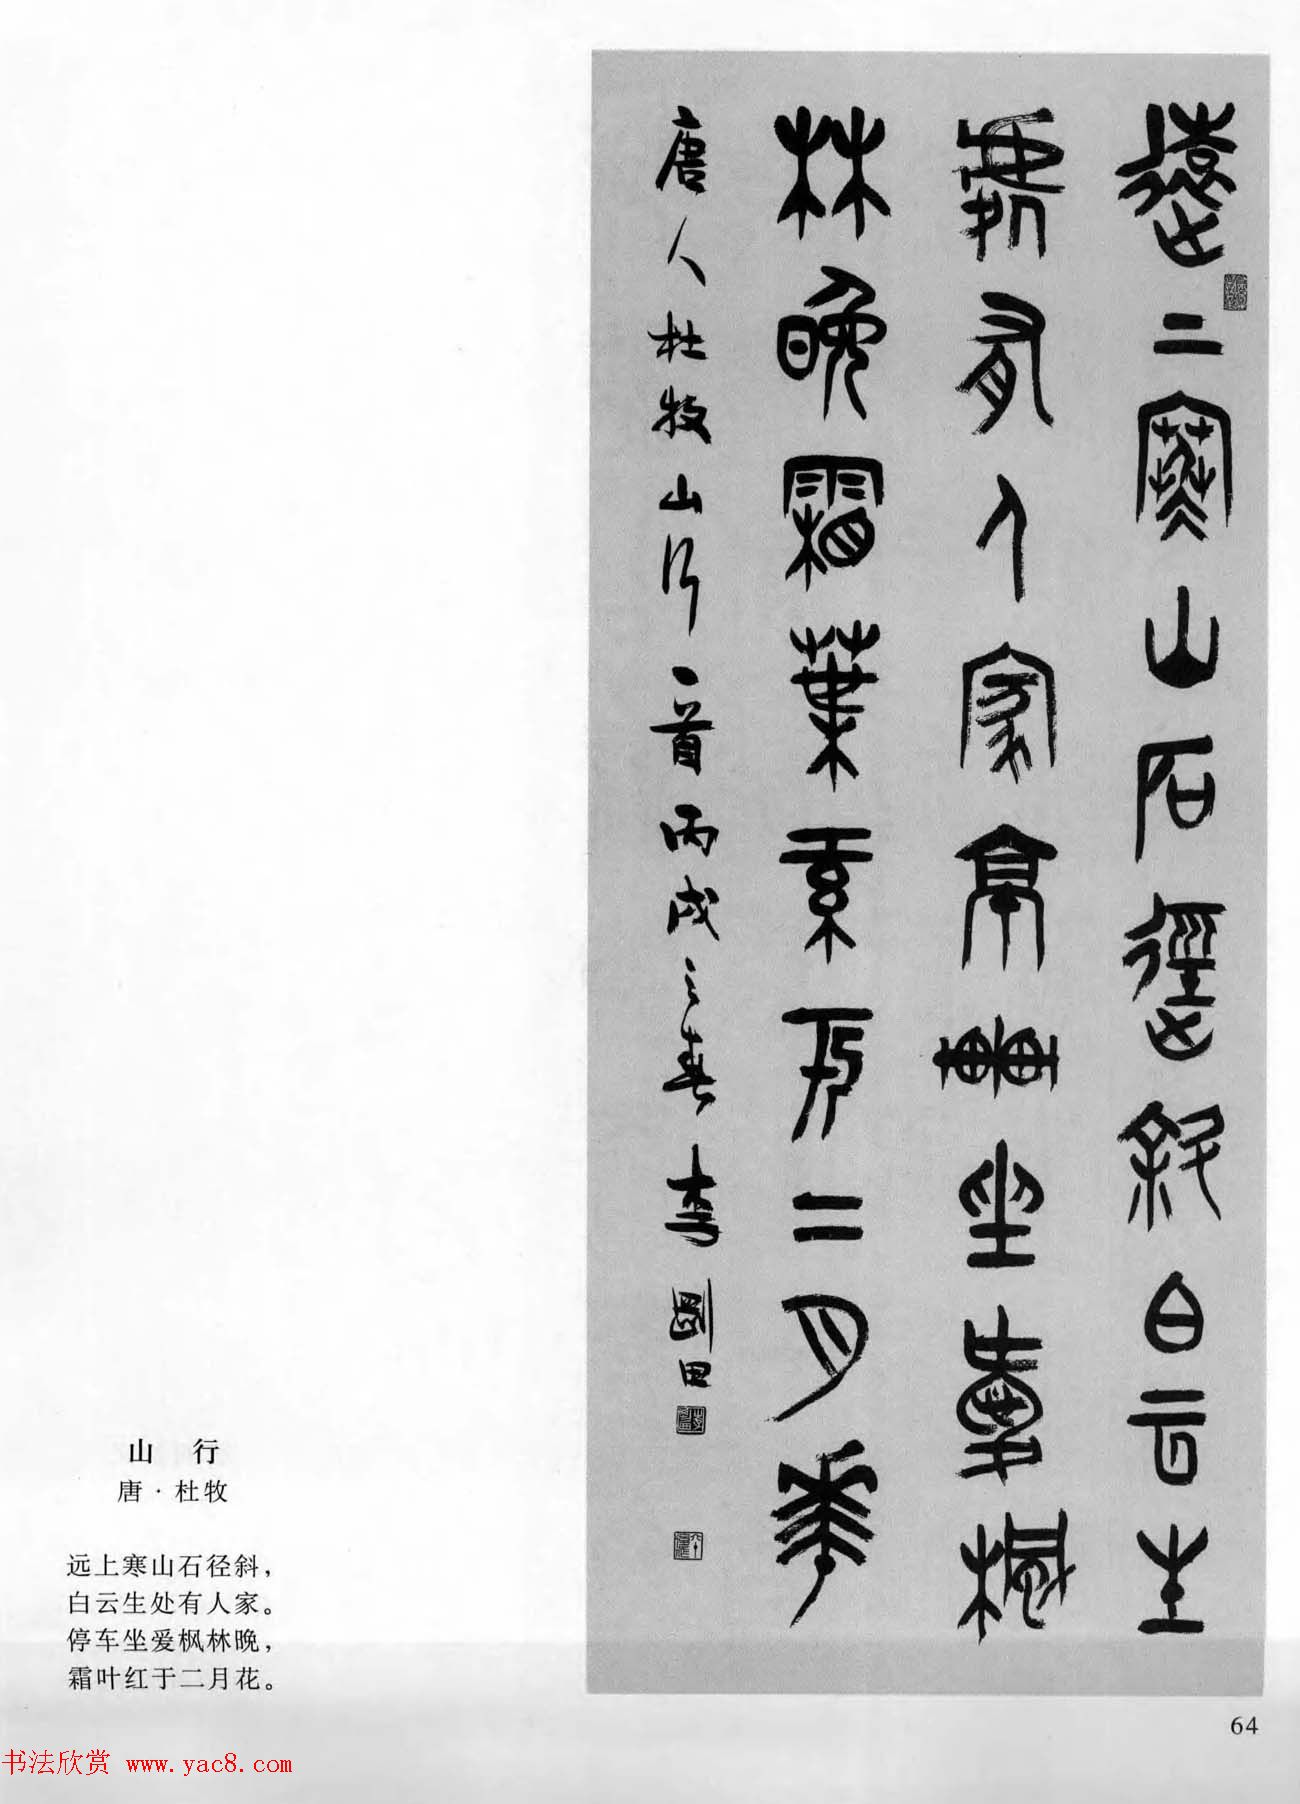 遠上寒山石徑斜白云生
處有人家亭車坐愛楓
林晚霜葉紅于二月華
唐人杜牧山行一首丙戌之春李剛田
山 行
唐·杜牧
远上寒山石径斜，
白云生处有人家。
停车坐爱枫林晚，
霜叶红于二月花。
64
书法欣赏 www.yac8.com